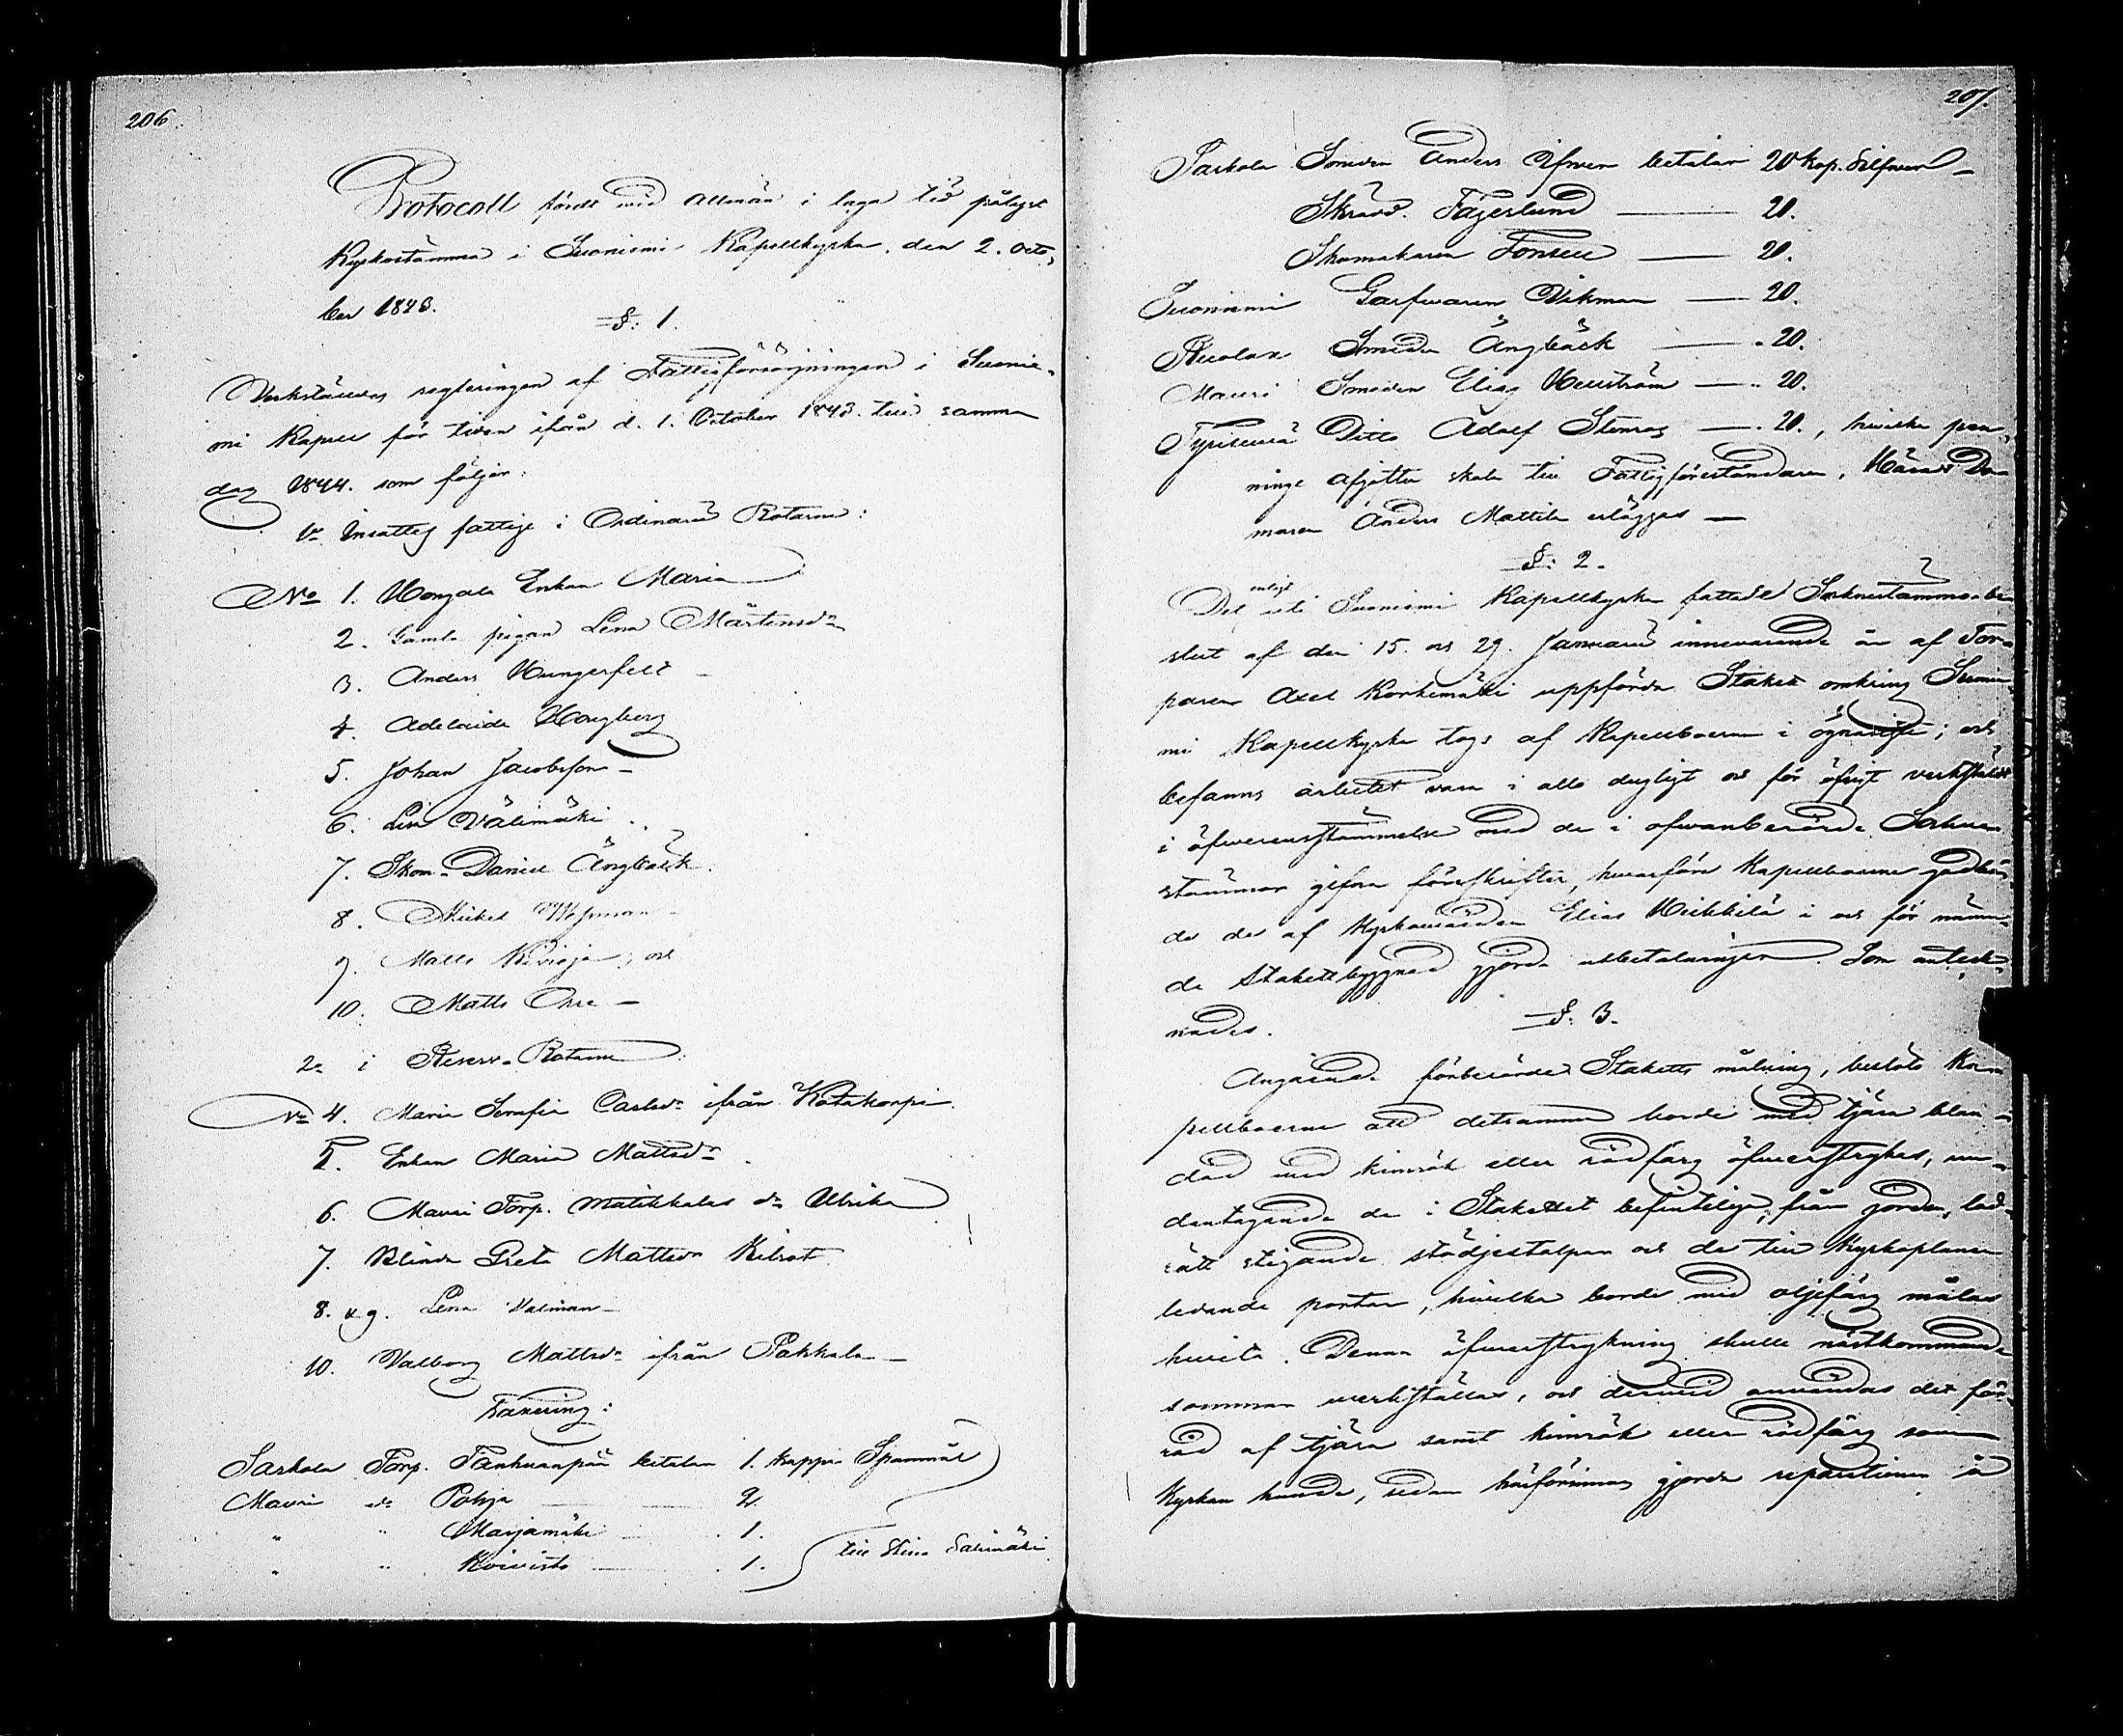 206.
Protocoll fördt vid allmän i laga tid pålyst
Kyrkostämma i Suoniemi Kapellkyrka den 2. Octo-
ber 1843.
§: 1.
Verkställdes regleringen af Fattigförsörjningen i Suonie-
mi Kapell för tiden ifrån d. 1. October 1843. till samma
dag 1844. som följer:
1o Insattes fattige i Ordinarie Rotarne:
No 1. Hongola Enkan Maria
2. Gamla pigan Lena Mårtensdr
3. Anders Hungerfelt
4. Adelaide Hongberg
5. Johan Jacobsson
6. Lisa Välimäki
7. Skom. Daniel Ängbäck.
8. Mickel
9. Matts Kivioja, och
10. Matts Ohra
2o i Reserv-Rotarne
No 4. Maria Serafia Carlsdr ifrån Kotakorpi.
5. Enkan Maria Mattsdr
6. Mauri Torp. Matikkalas dr Ulrika
7. Blinda Greta Mattsdr
8. & 9. Lena Valman
10. Valborg Mattsdr ifrån Pakkala
Taxering:
Sarkola Torp. Tanhuanpää betalar 1. kappe Spannmål
Mauri do Pohja 2.
" " Marjamäki 1.
" " Koivisto 1. till Stina Salimäki
207.
Sarkola Smeden Anders betalar 20 kop. Silfver
Skradd. Fagerlund 20.
Skomakaren Fonsell 20.
Suoniemi Garfvaren Vikman 20.
Kuolax Smeden Ängbäck 20.
Mauri Smeden Elias Hellström 20.
Ditto Adolf Stenros 20., hvilka pen-
ninge afgifter skola till Fattigföreståndaren, Härads Do-
maren Anders Mattila erläggas
§: 2.
Det enligt uti Suoniemi Kapellkyrka fattade Sockenstämmo-be-
slut af den 15. och 29. Januarii innevarande år af Tor-
paren Axel Korkemäki uppförda Staket omkring Suonie-
mi Kapellkyrka togs af Kapellboerne i ögnasigte; och
befanns arbetet vara i allo dugligt och för öfrigt verkstäldt
i öfverensstämmelse med de i ofvanberörde Socken-
stämmor gifne föreskrifter, hvarföre Kapellboerne godkän-
de de af Kyrkovärden Elias Heikkilä i och för nämn-
de Staketsbyggnad gjorda utbetalningar. Som anteck-
nades.
§: 3.
Angående förberörde Staketts målning, beslöto Ka-
pellboerne att detsamma borde med tjära blan-
dad med kimrök eller rödfärg öfverstrykas, un-
dantagande de i Stakettet befintelige, från jorden lod-
rätt stigande stödjestolpar och de till Kyrkoplanen
ledande portar, hvilka borde med oljefärg målas
hvita. Denna öfverstrykning skulle nästkommande
sommar verkställas, och dervid användas det för-
råd af tjära samt kimrök eller rödfärg som
Kyrkan hade, sedan härförinnan gjorde reparationer å